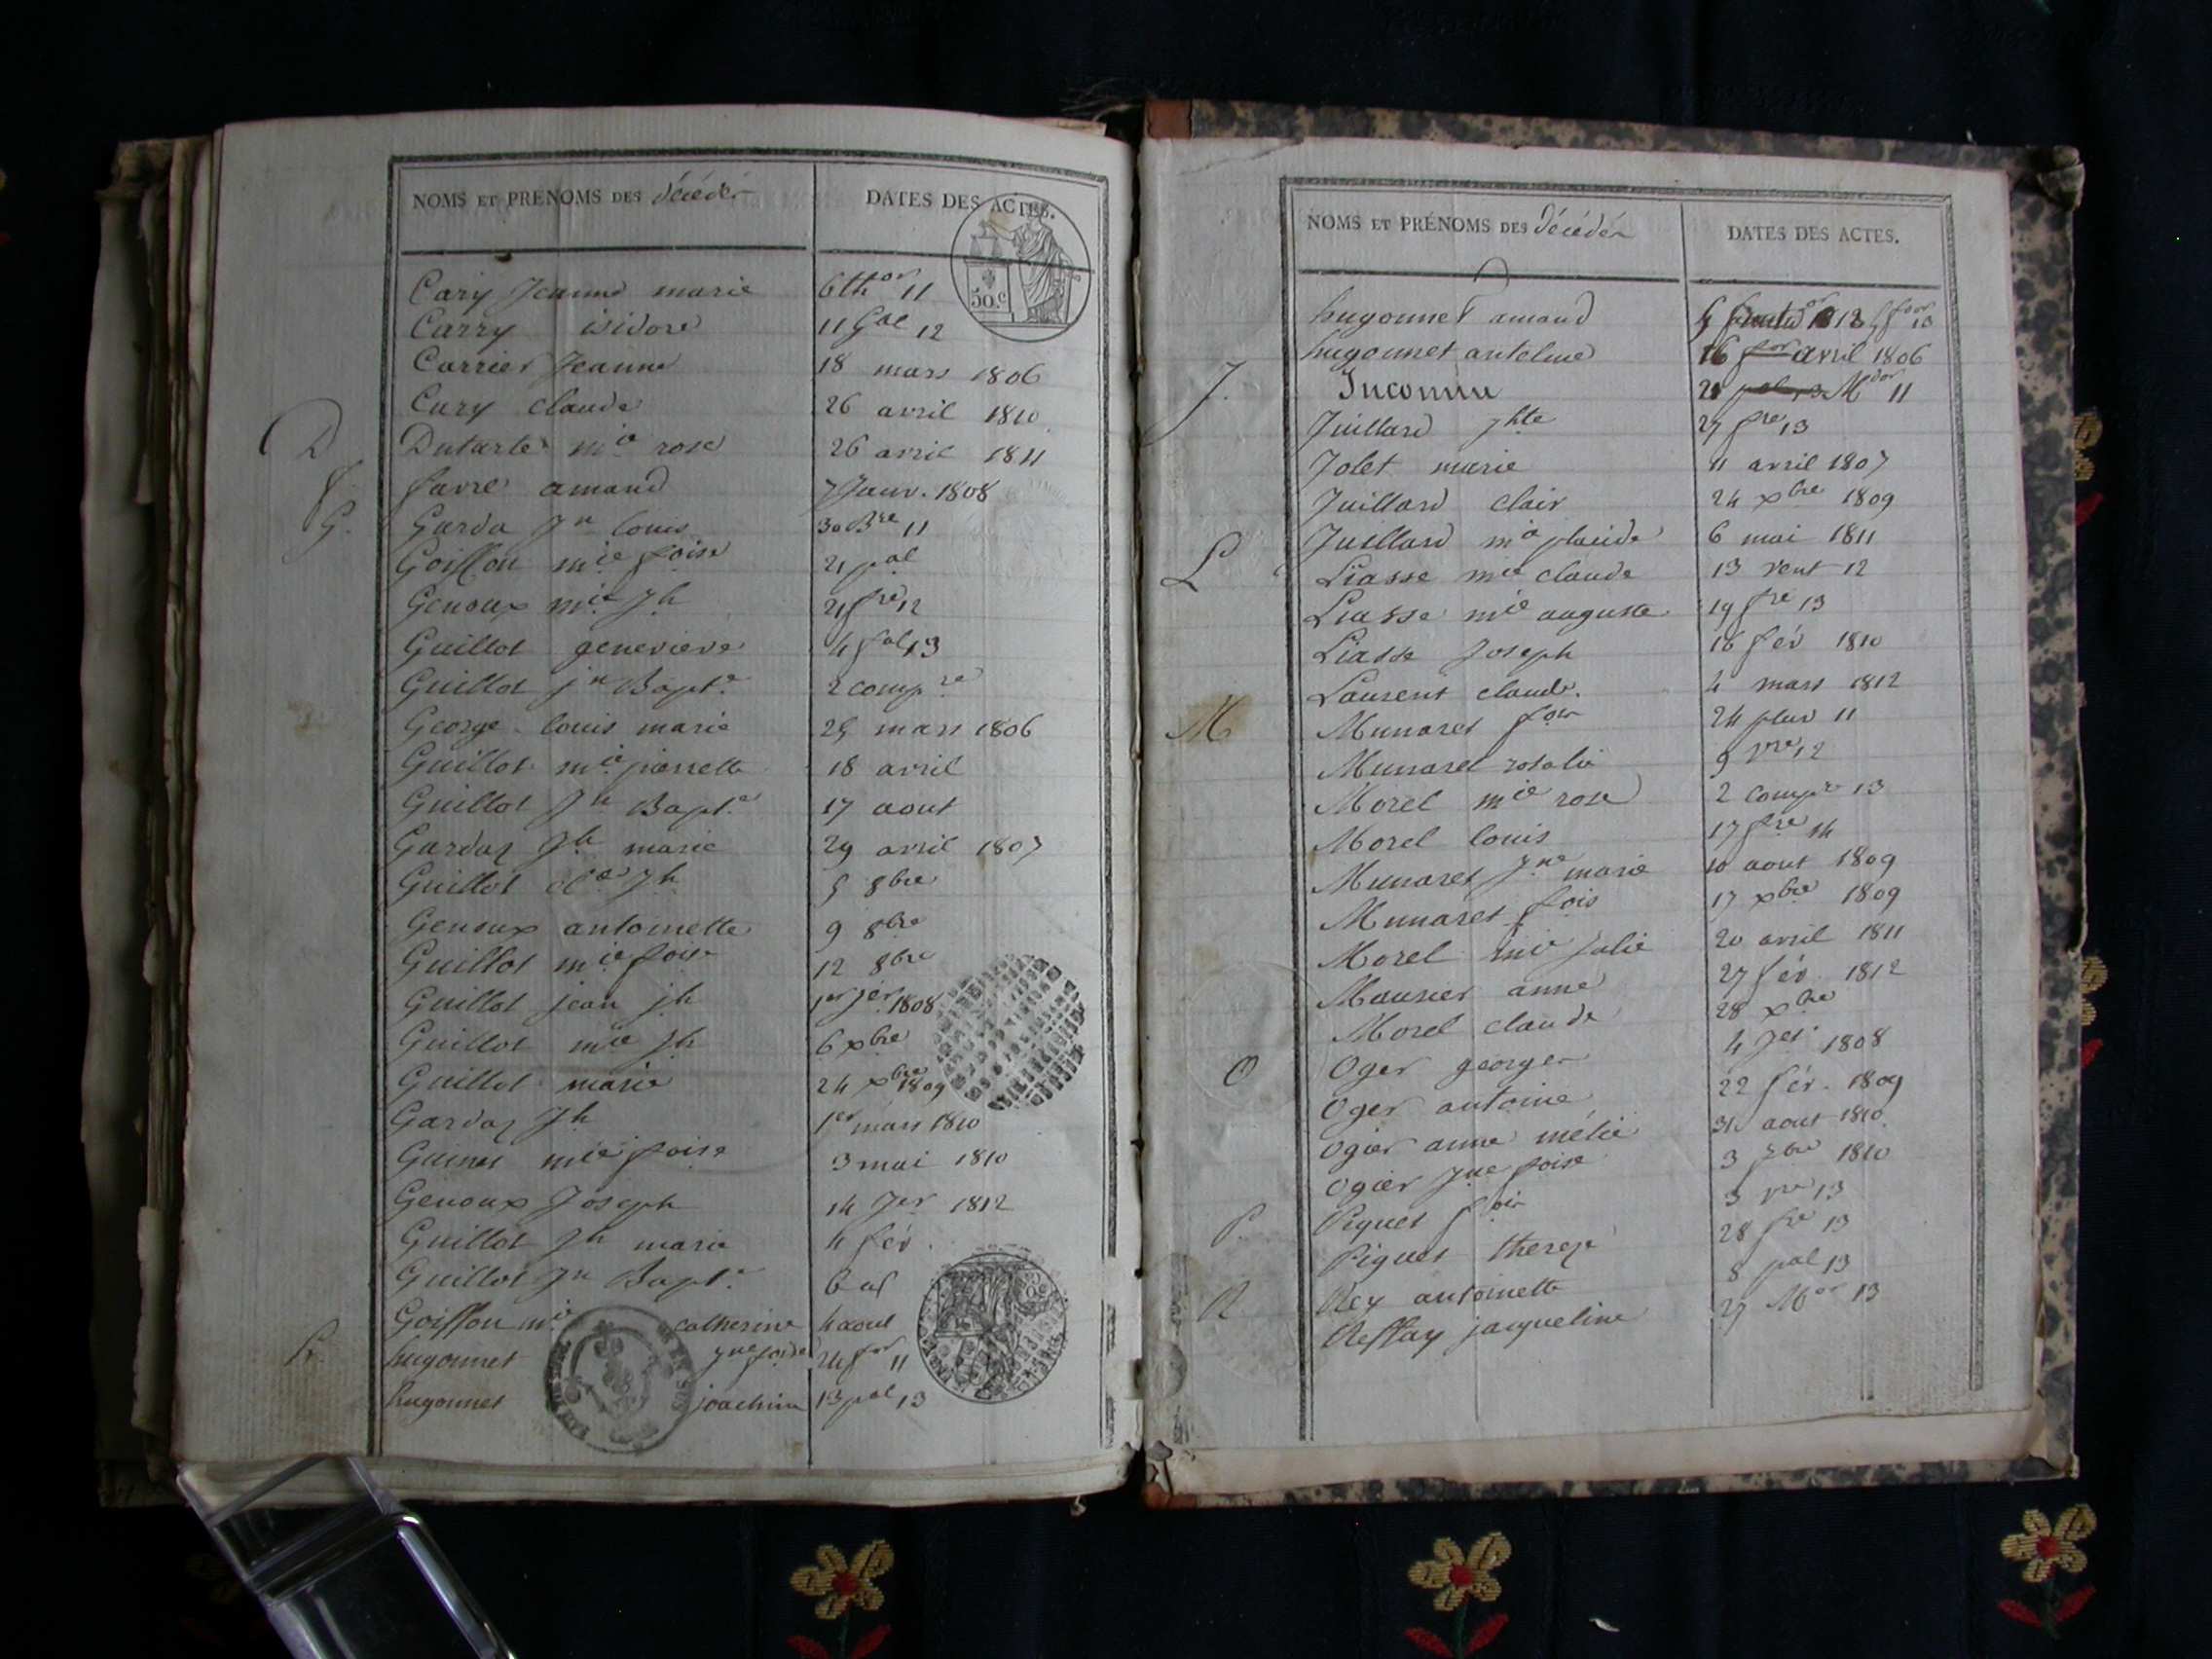 NOMS ET PRÉNOMS DES décédés
DATES DES ACTES.
50.c
Cary Jeanne marie 6 thor 11
Carry isidore 11 Gal 12
Carrier Jeanne 18 mars 1806
Cury claude 26 avril 1810
D
Dutarte mie rose 26 avril 1811
f
favre amand 7 Janv. 1808
G.
Garda Jn louis 30 Bre 11
Goiffon mie foise 21 pal
Genoux mie Jh 21 fre 12
Guillot genevieve 4 fal 13
Guillot jn Bapte 2 compre
George louis marie 25 mars 1806
Guillot mie pierrette 18 avril
Guillot Jn Bapte 17 aout
Gardaz Jh marie 29 avril 1807
Guillot cle Jh 5 8bre
Genoux antoinette 9 8bre
Guillot mie foise 12 8bre
Guillot jean jh 1er jer 1808
Guillot mie Jh 6 xbre
Guillot marie 24 xbre 1809
Gardaz Jh 1er mars 1810
mie foise 3 mai 1810
Genoux Joseph 14 Jer 1812
Guillot Jh marie 4 fév.
Guillot Jn Bapte
Goiffon mie catherine 4 aout
h.
hugonnet jne foise 24 for 11
hugonnet joachim 13 pal 13
NOMS ET PRÉNOMS DES décédés
DATES DES ACTES.
hugonnet amand
hugonnet antelme 16 avril 1806
J.
Inconnu Mdor 11
Juillard jhte 27 fre 13
Jolet marie 11 avril 1807
Juillard clair 24 xbre 1809
Juillard me placide 6 mai 1811
L
Liasse mie claude 13 vent 12
Liasse mie auguste 19 fre 13
Liasse Joseph 16 fév 1810
Laurent claude. 4 mars 1812
M
Munaret fois 24 pluv 11
Munaret rosalie 9 vre 12
Morel mie rose 2 compre 13
Morel louis 17 fre 14
Munaret Jne marie 10 aout 1809
Munaret fois 17 xbre 1809
Morel mie Julie 20 avril 1811
Maunier anne 27 fév. 1812
Morel claude 28 xbre
O
Oger georges 4 jet 1808
Oger antoine 22 fév. 1809
Ogier anne mélie 31 aout 1810
Ogier Jne foise 3 7bre 1810
P.
Piquet fois 3 vre 13
Piquet thereze 28 fre 13
R
Rey antoinette 8 pal 13
Reffay jacqueline 27 Mor 13